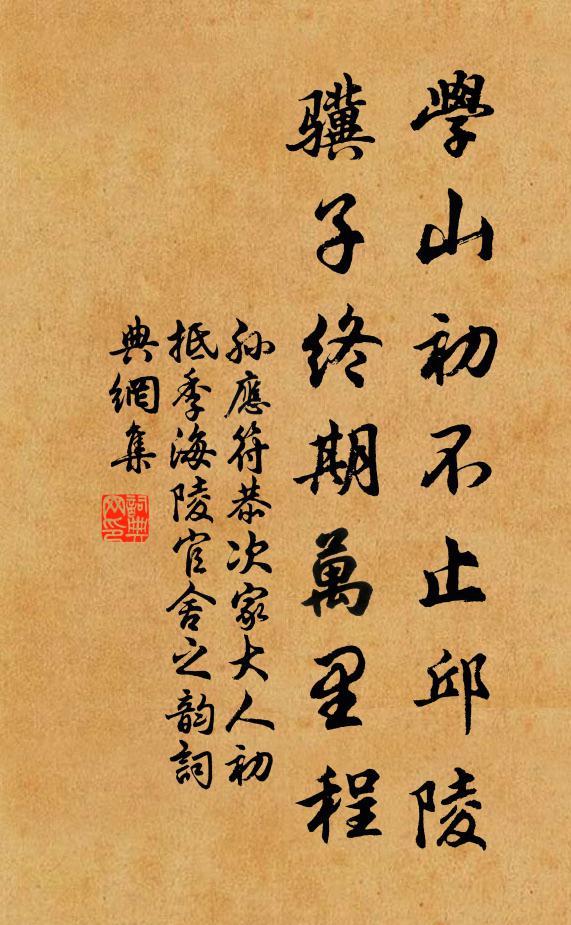 學山初不止邱陵
驥子終期萬里程
孫應符恭次家大人初
抵季海陵官舍之韵詞
典網集
詞典
网印